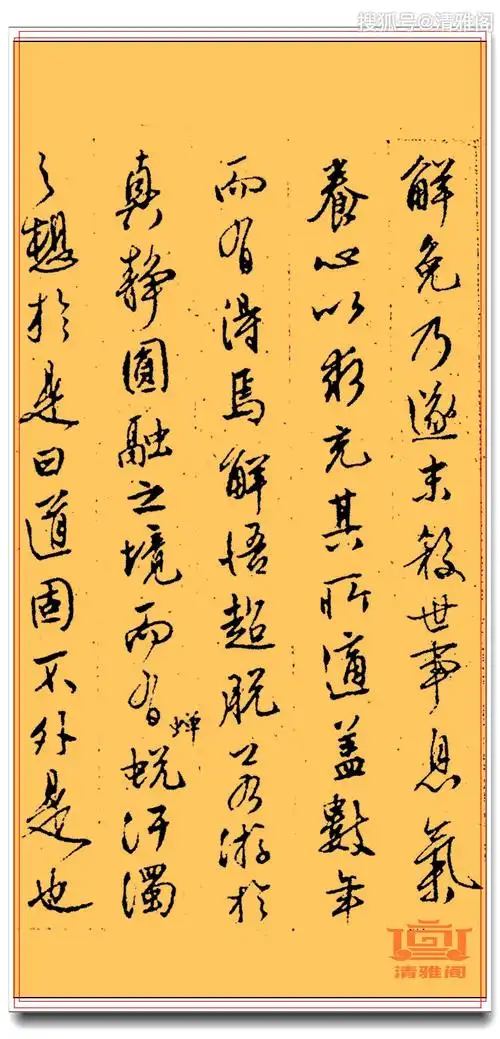 搜狐号@清雅阁
解免乃遂末殺世事息氣
養心以求充其所適蓋數年
而有得焉解悟超脱若游於
真靜圓融之境而有蟬蜕汙濁
之想於是曰道固不外是也
清雅阁